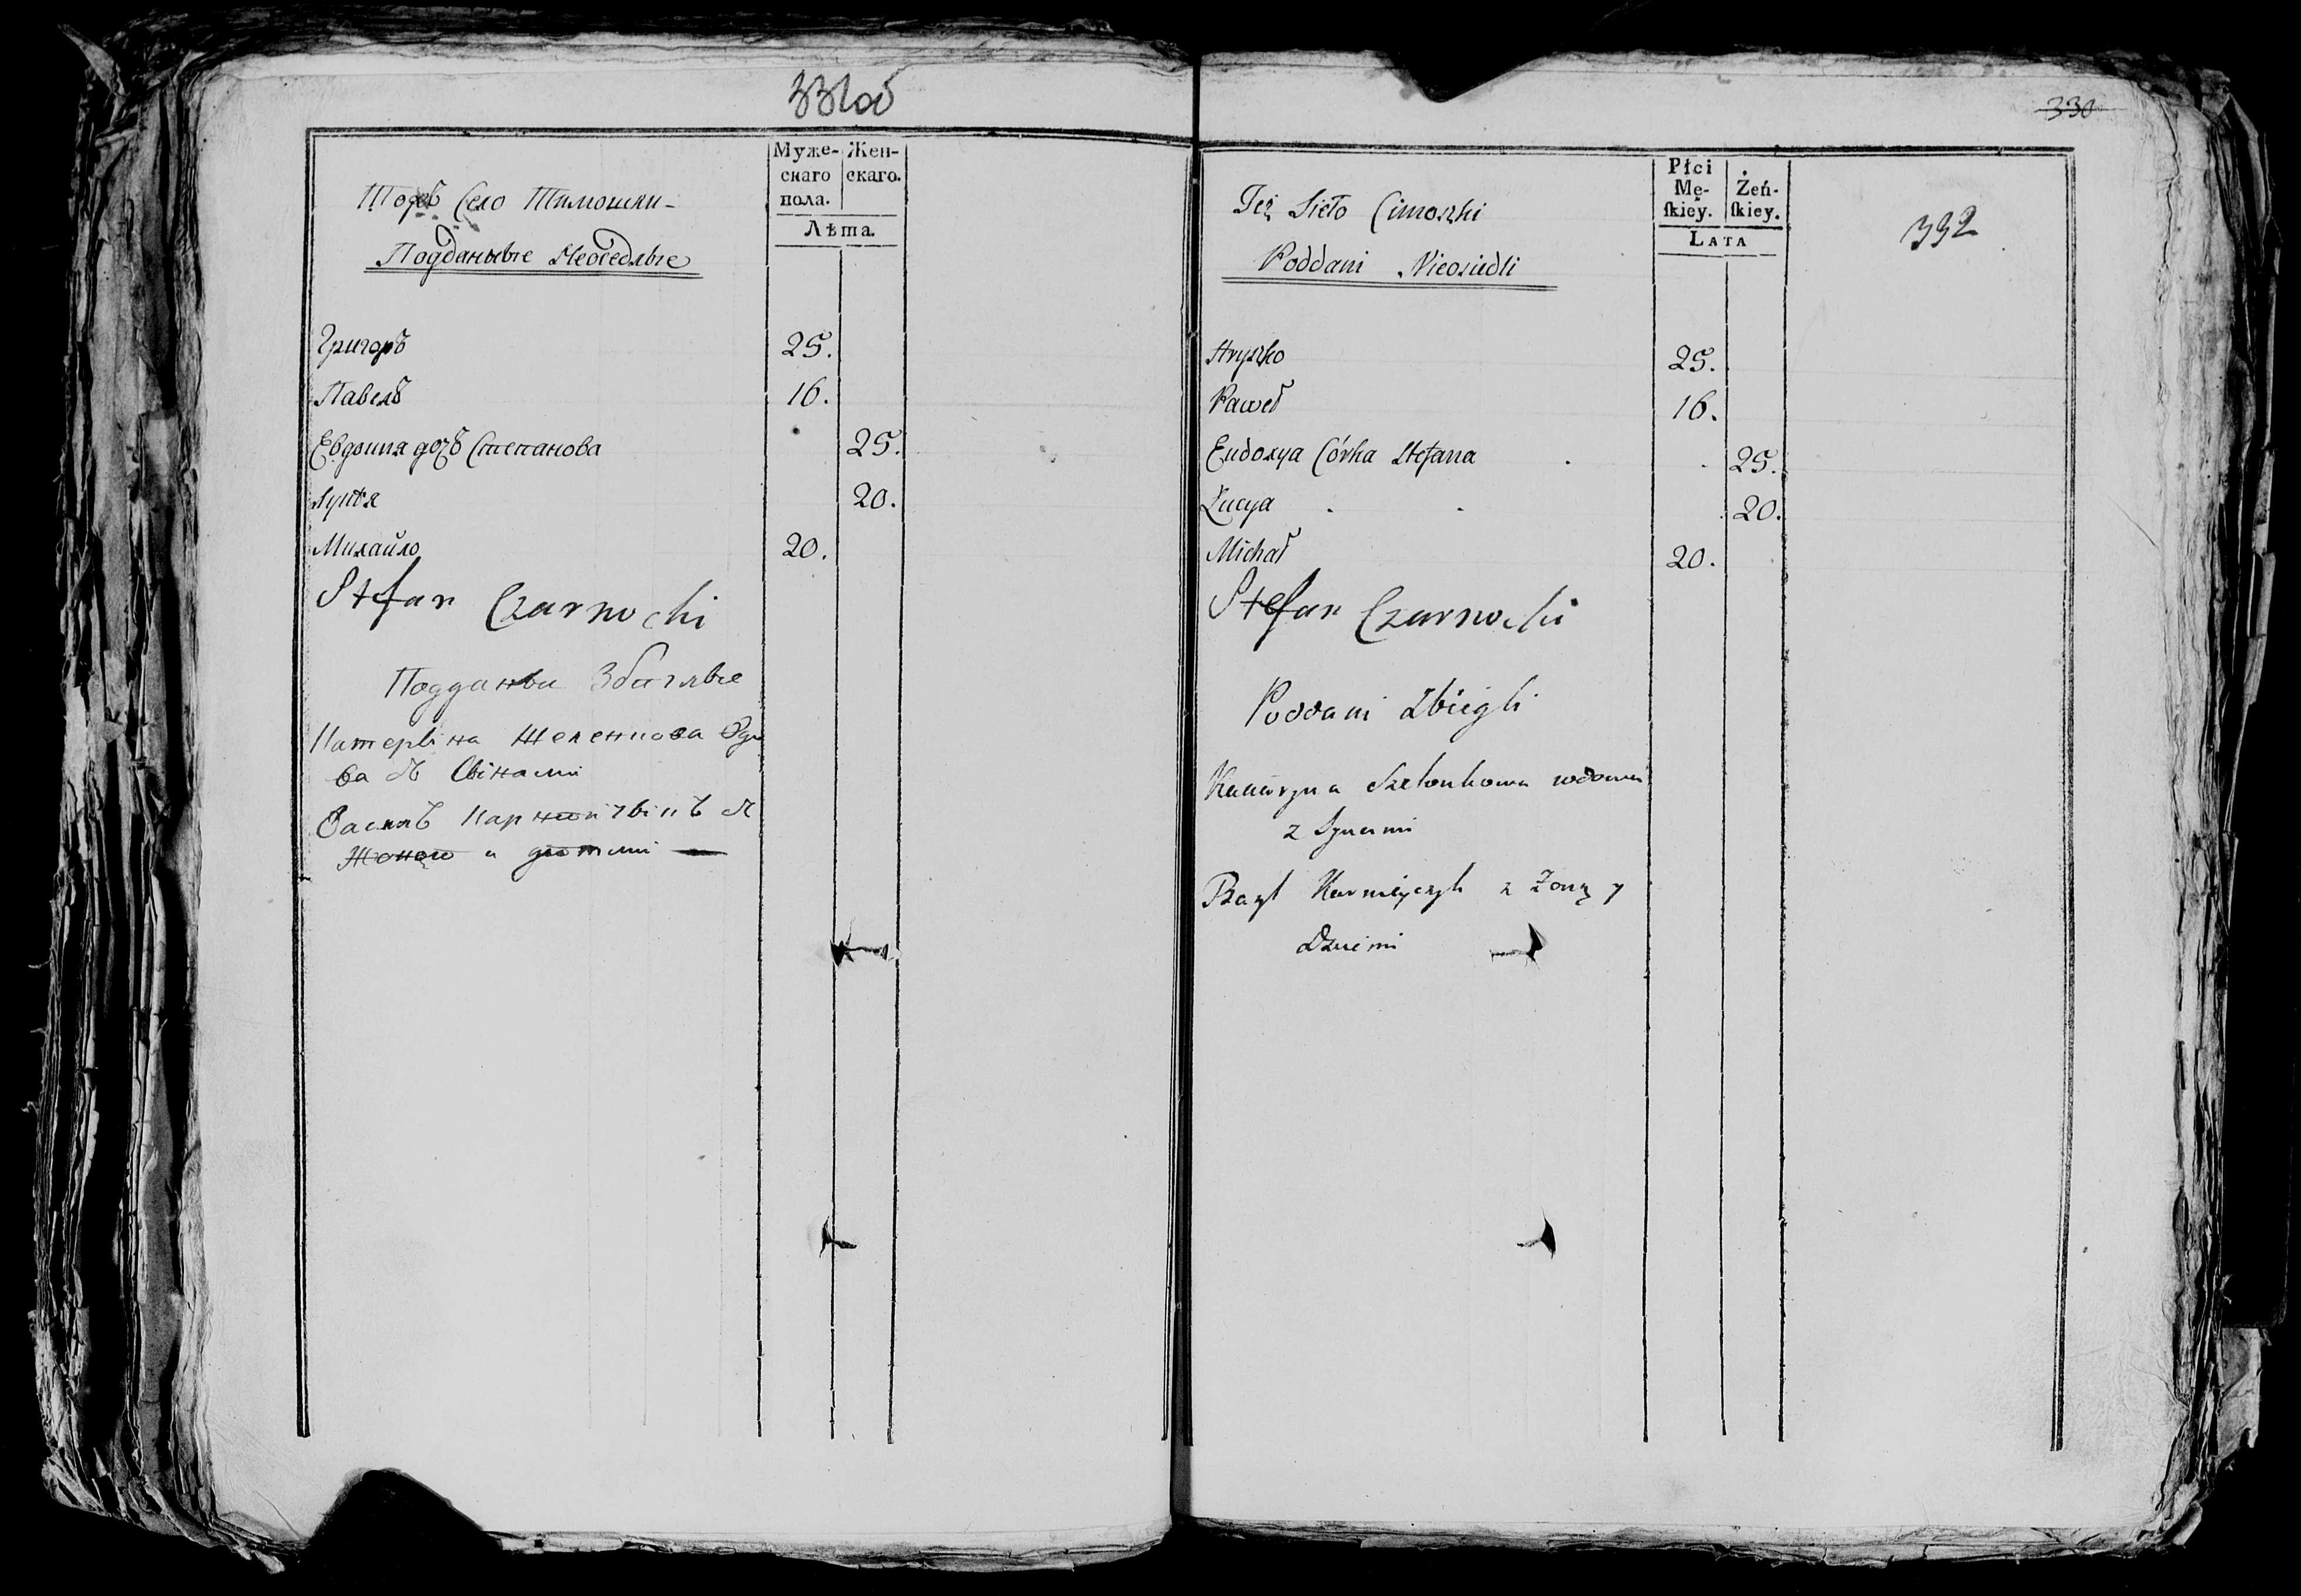 331об
Муже- Жен-
скаго скаго.
пола.
Лѣта.
Тоежъ Село Тимошки
Подданные Неоседлые
Григоръ 25.
Павелъ 16.
Евдокия дочъ Степанова 25.
Луцѣя 20.
Михайло 20.
Stefan Czarnocki
Поддани Збеглые
Катеріна Шеленкова Вдо
ва з Сінами
Василь з
Жоною и детми
330
332
Płci
Mę- Żeń-
skiey. skiey.
LATA
Też Sieło Cimoszki
Poddani Nieosiedli
Hryszko 25.
Paweł 16.
Eudoxya Córka Stefana 25.
Łucya 20.
Michał 20.
Stefan Czarnocki
Poddani Zbiegli
Katarzyna Szelonkowa wdowa
z Synami
Bazyl z Żoną y
Dziećmi